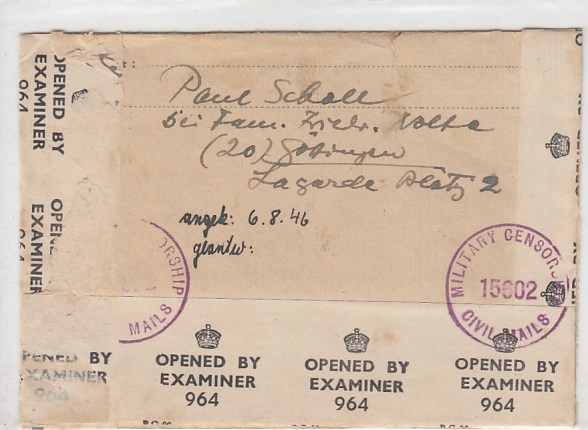 OPENED BY
EXAMINER
964
OPENED BY
EXAMINER
964
Paul Scholl
bei Fam. Friedr. Nolte
(20) Göttingen
Lagarde Platz 2
angek: 6.8.46
geantw:
ORSHIP
MAILS
MILITARY CENSORS
15602
CIVIL MAILS
OPENED BY
EXAMINER
964
OPENED BY
EXAMINER
964
OPENED BY
EXAMINER
964
OPENED BY
EXAMINER
964